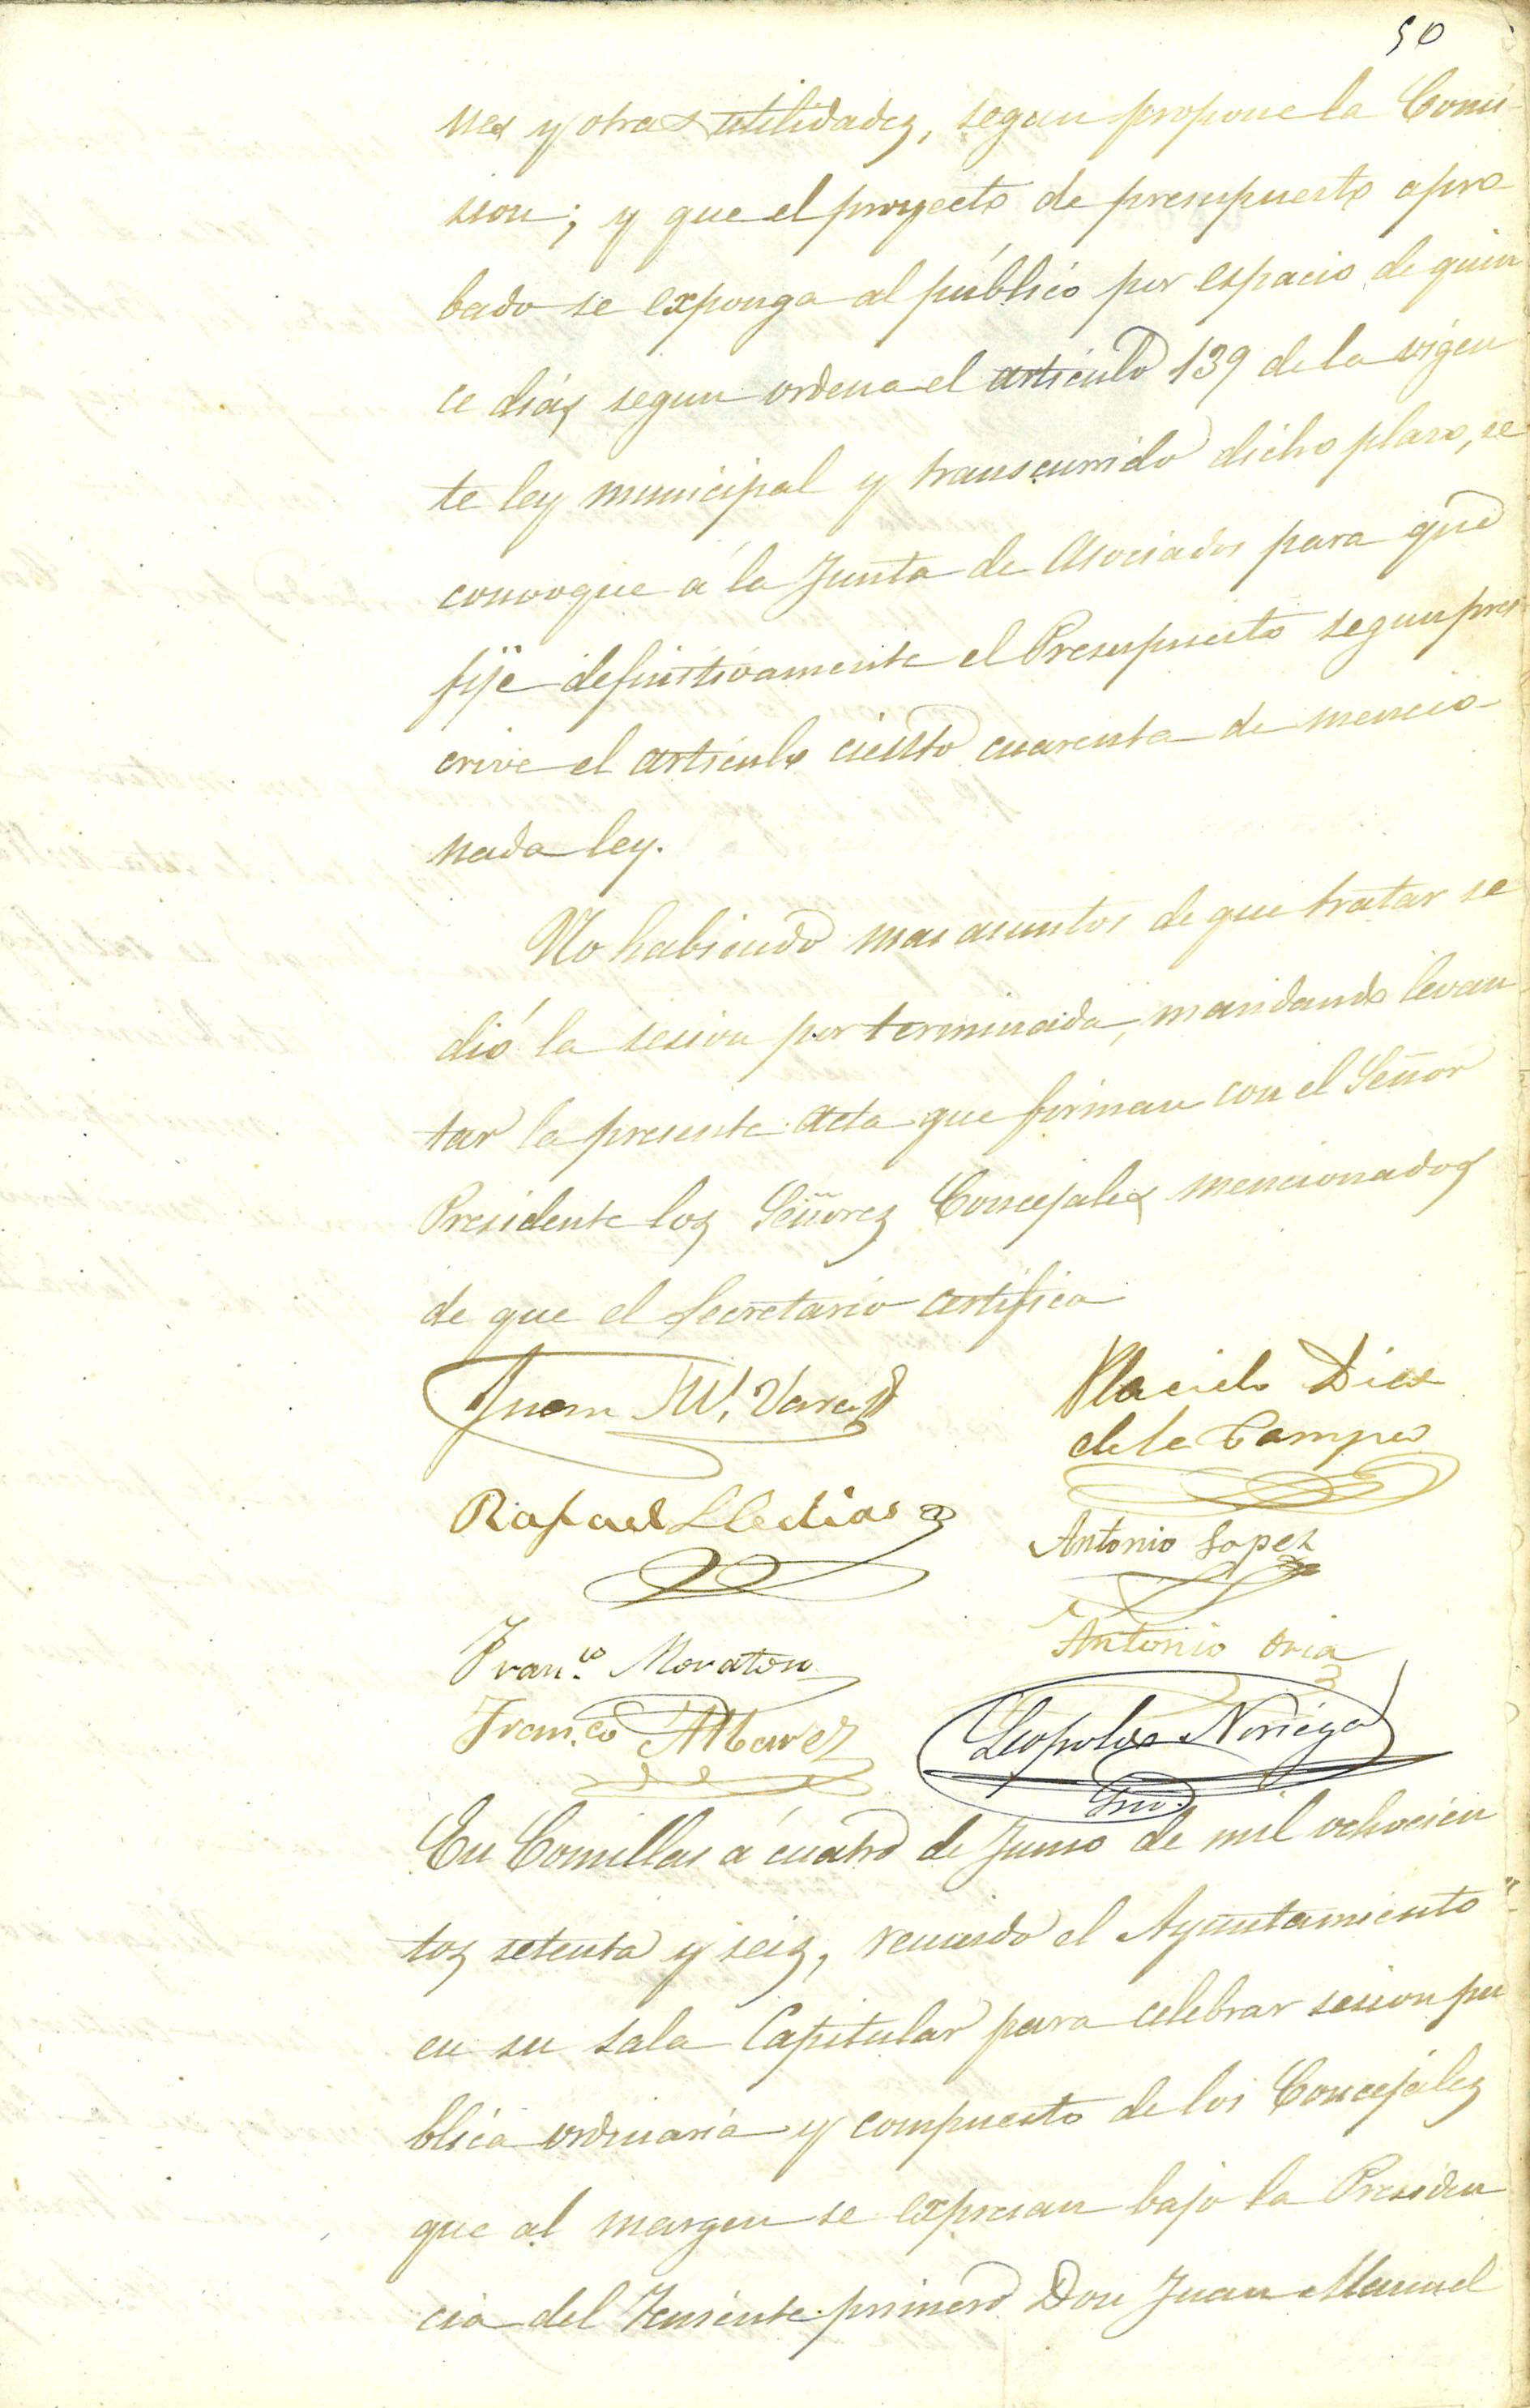 50
nes y otras utilidades, segun propone la Comi-
sion; y que el proyecto de presupuesto apro-
bado se exponga al público por espacio de quin
ce dias segun ordena el artículo 139 de la vigen
te ley municipal y transcurrido dicho plazo, se
convoque á la Junta de Asociados para que
fije definitivamente el Presupuesto segun pres
crive el articulo ciento cuarenta de mencio-
nada ley.
No habiendo mas asuntos de que tratar se
dió la sesion por terminada, mandando levan
tar la presente acta que firman con el Señor
Presidente los Señores Concejales mencionados
de que el Secretario certifica
Juan M. Vara
Placido Diaz
de la Campa
Rafael Lledias
Antonio Lopez
Franco Moraton
Antonio Oria
Franco Alvarez
Leopoldo Noriega
Srio.
En Comillas á cuatro de Junio de mil ochocien
tos setenta y seis, reunido el Ayuntamiento
en su sala Capitular para celebrar sesion pu
blica ordinaria y compuesto de los Concejales
que al margen se expresan bajo la Presiden
cia del Teniente primero Don Juan Manuel